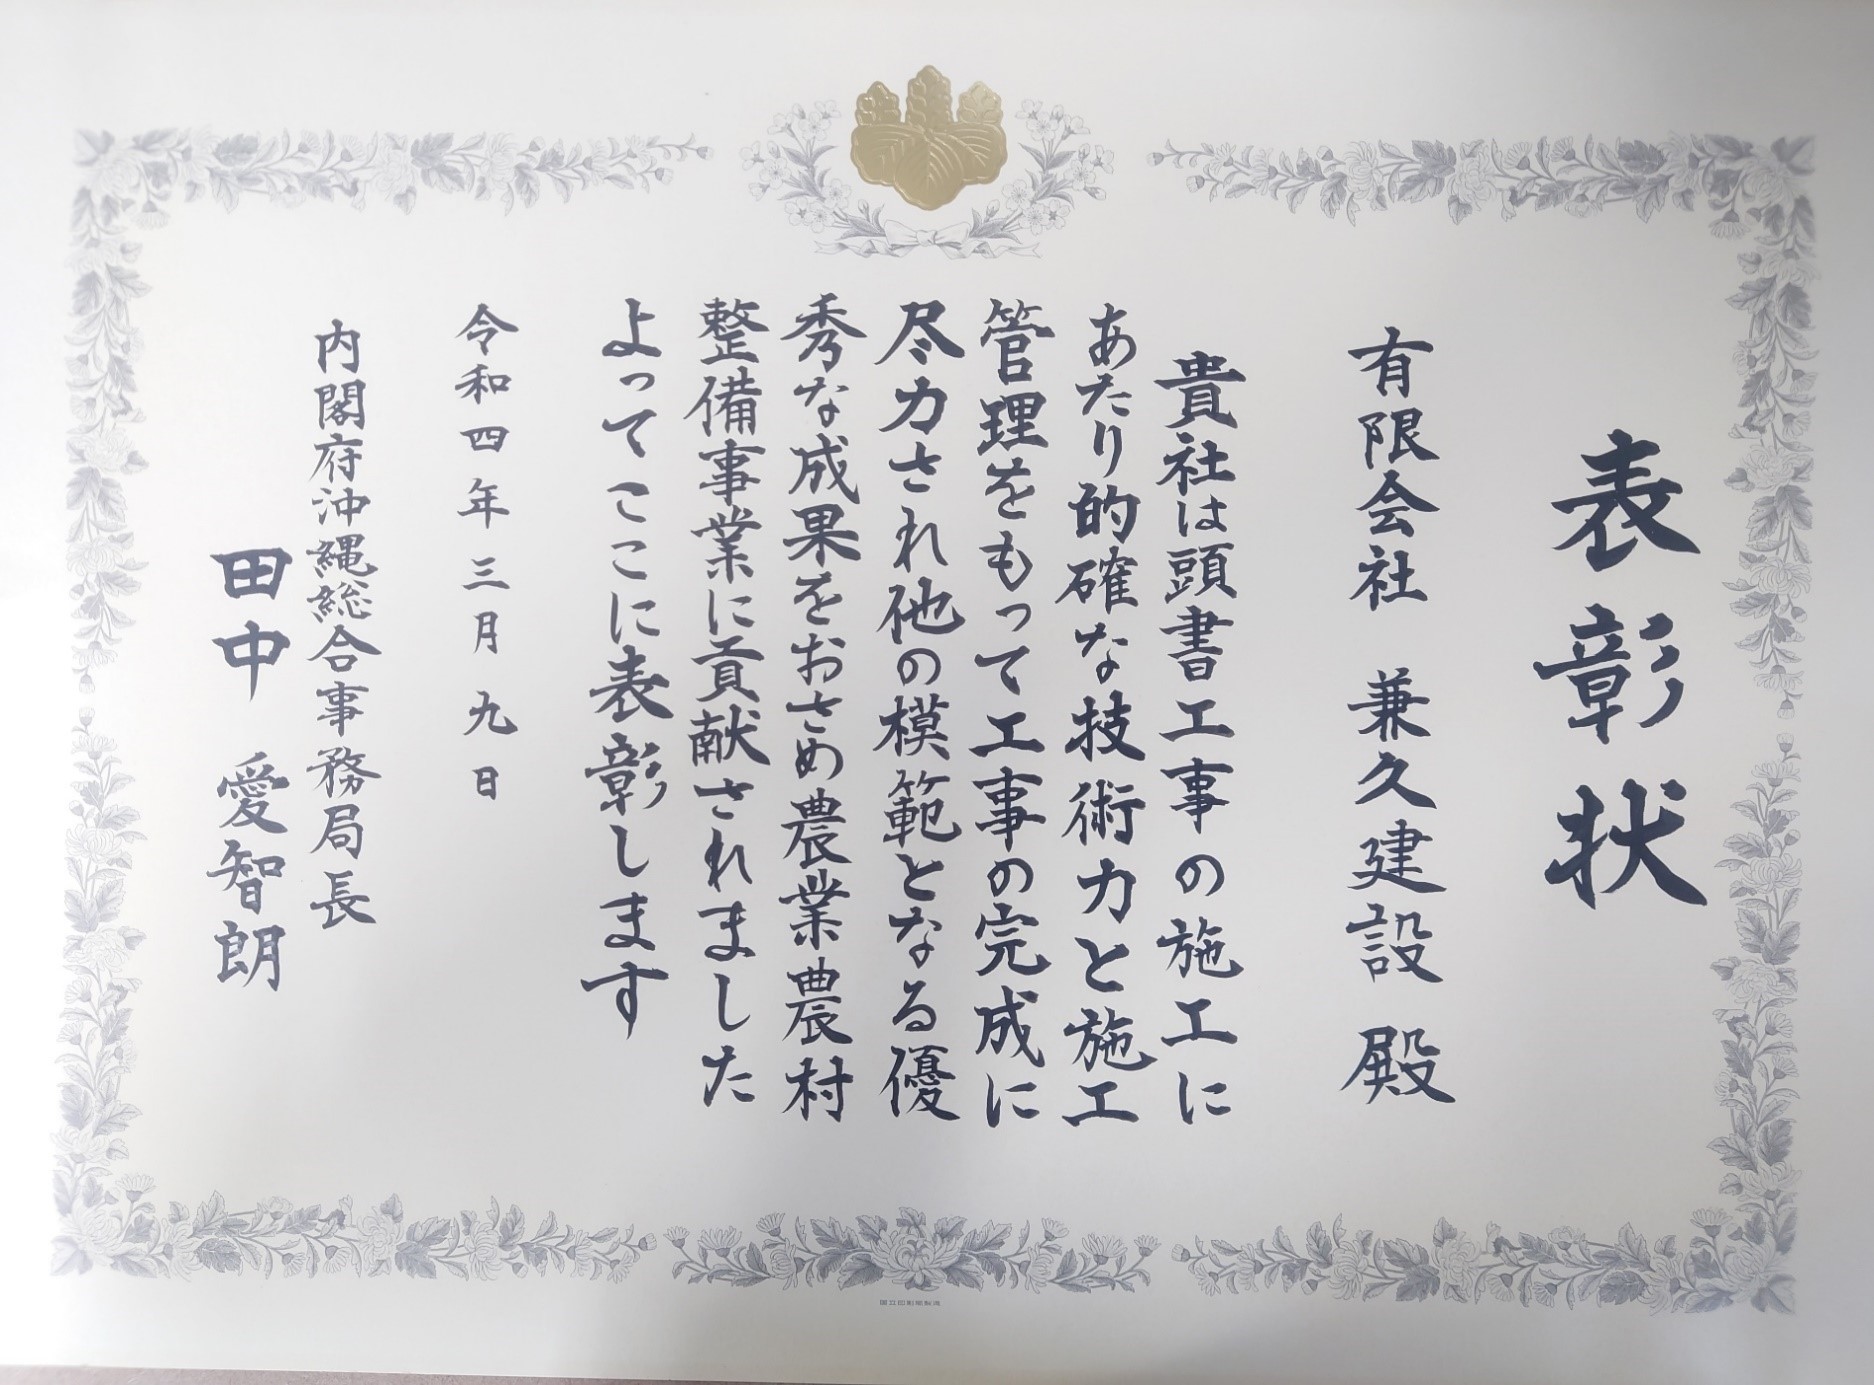 表彰状
有限会社 兼久建設 殿
貴社は頭書工事の施工に
あたり的確な技術力と施工
管理をもって工事の完成に
尽力され他の模範となる優
秀な成果をおさめ農業農村
整備事業に貢献されました
よってここに表彰します
令和四年三月九日
内閣府沖縄総合事務局長
田中 愛智朗
国立印刷局製造